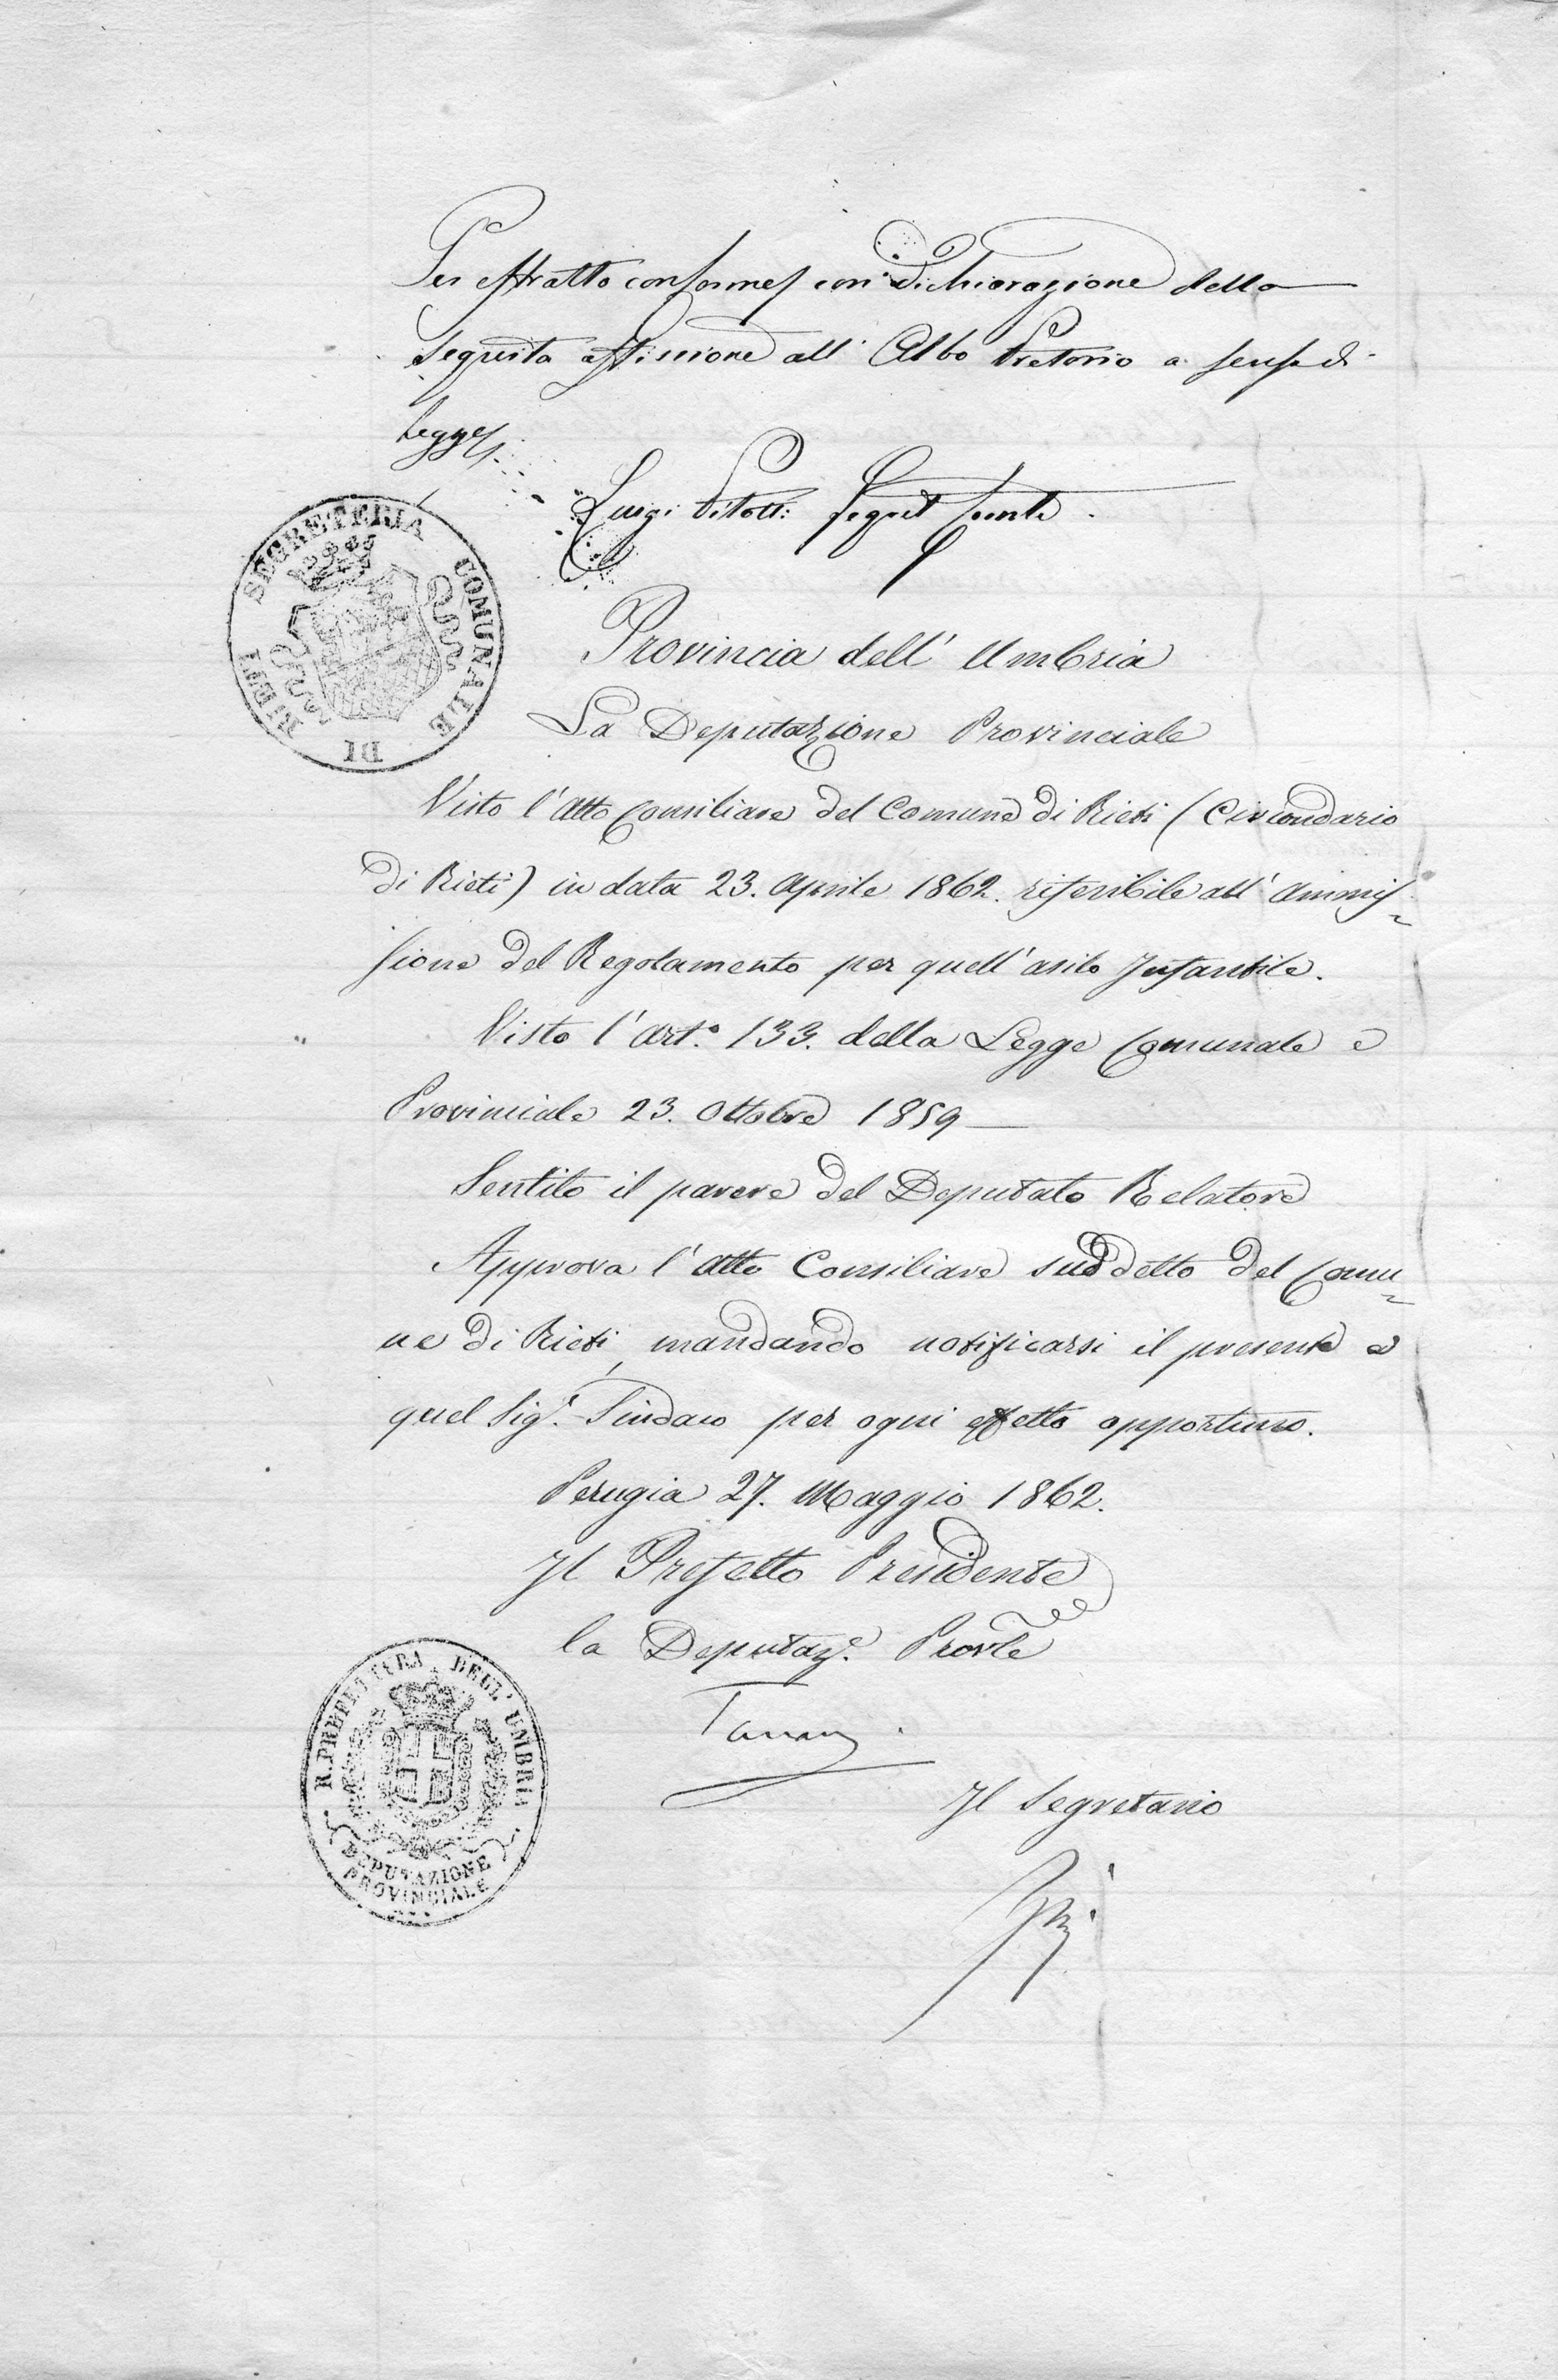 Per estratto conforme con dichiarazione della
seguita affissione all' Albo Pretorio a senso di
Legge.
Luigi Vitotti Segret Comle.
SEGRETERIA COMUNALE
DI RIETI
Provincia dell' Umbria
La Deputazione Provinciale
Visto l'atto Consiliare del Comune di Rieti (Circondario
di Rieti) in data 23. Aprile 1862. riferibile all' ammis=
sione del Regolamento per quell'asilo Infantile.
Visto l'art.º 133. della Legge Comunale e
Provinciale 23. Ottobre 1859 —
Sentito il parere del Deputato Relatore
Approva l'atto Consiliare suddetto del Comu=
ne di Rieti, mandando notificarsi il presente a
quel Sig.r Sindaco per ogni effetto opportuno.
Perugia 27. Maggio 1862.
Il Prefetto Presidente
la Deputaz.e Provle
R. PREFETTURA DELL' UMBRIA
DEPUTAZIONE
PROVINCIALE
Il Segretario